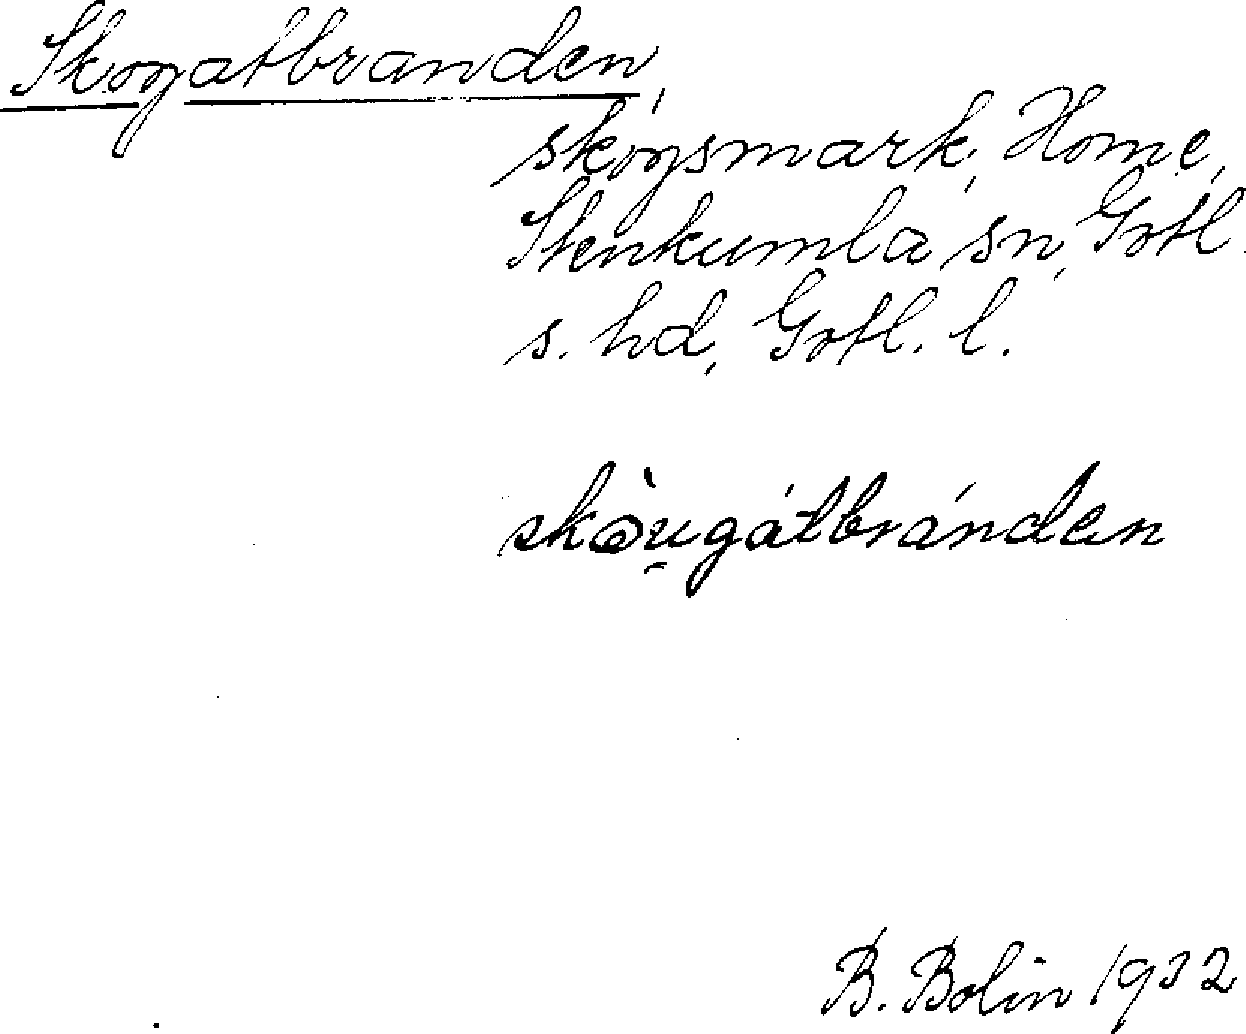 Skogatbranden,
skogsmark, Home,
Stenkumla sn, Gotl.
s. hd, Gotl. l.
skòu̯gátbránden
B. Bolin 1932